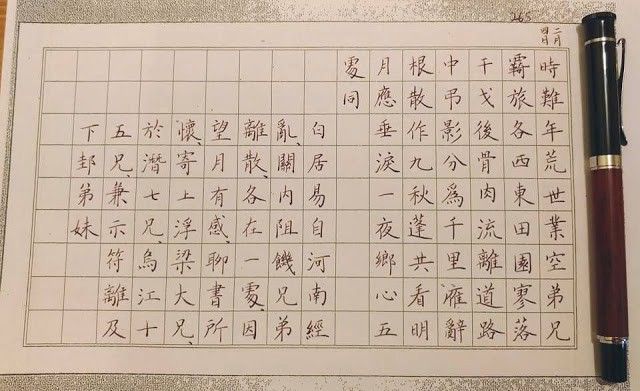 265
二月
四日
時難年荒世業空弟兄
霸旅各西東田園寥落
干戈後骨肉流離道路
中弔影分爲千里雁辭
根散作九秋蓬共看明
月應垂淚一夜鄉心五
處同
白居易自河南經
亂、關內阻饑、兄弟
離散、各在一處、因
望月有感、聊書所
懷、寄上浮梁大兄、
於潛七兄、烏江十
五兄、兼示符離及
下邽弟妹